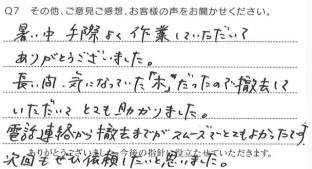 Q7 その他、ご意見ご感想、お客様の声をお聞かせください。
暑い中 手際よく作業していただいて
ありがとうございました。
長い間、気になっていた"木"だったので撤去して
いただいて とても助かりました。
電話連絡から撤去までがスムーズでとてもよかったです。
ありがとうございました。今後の指針に役立たせていただきます。
次回もぜひ依頼したいと思いました。